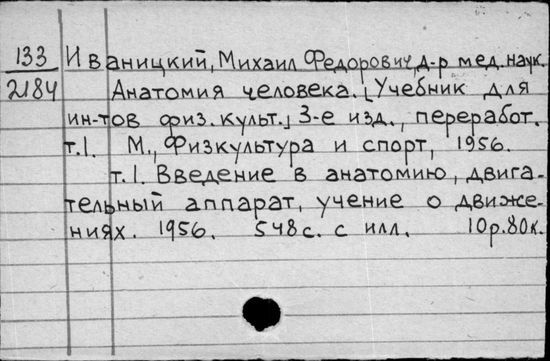 133 Иваницкий, Михаил Федорович, д-р мед. наук.
2184 Анатомия человека. [Учебник для
ин-тов физ. культ.] 3-е изд., переработ.
т.1. М., Физкультура и спорт, 1956.
т.1. Введение в анатомию, двига-
тельный аппарат, учение о движе-
ниях. 1956. 548с. с илл. 10р.80к.